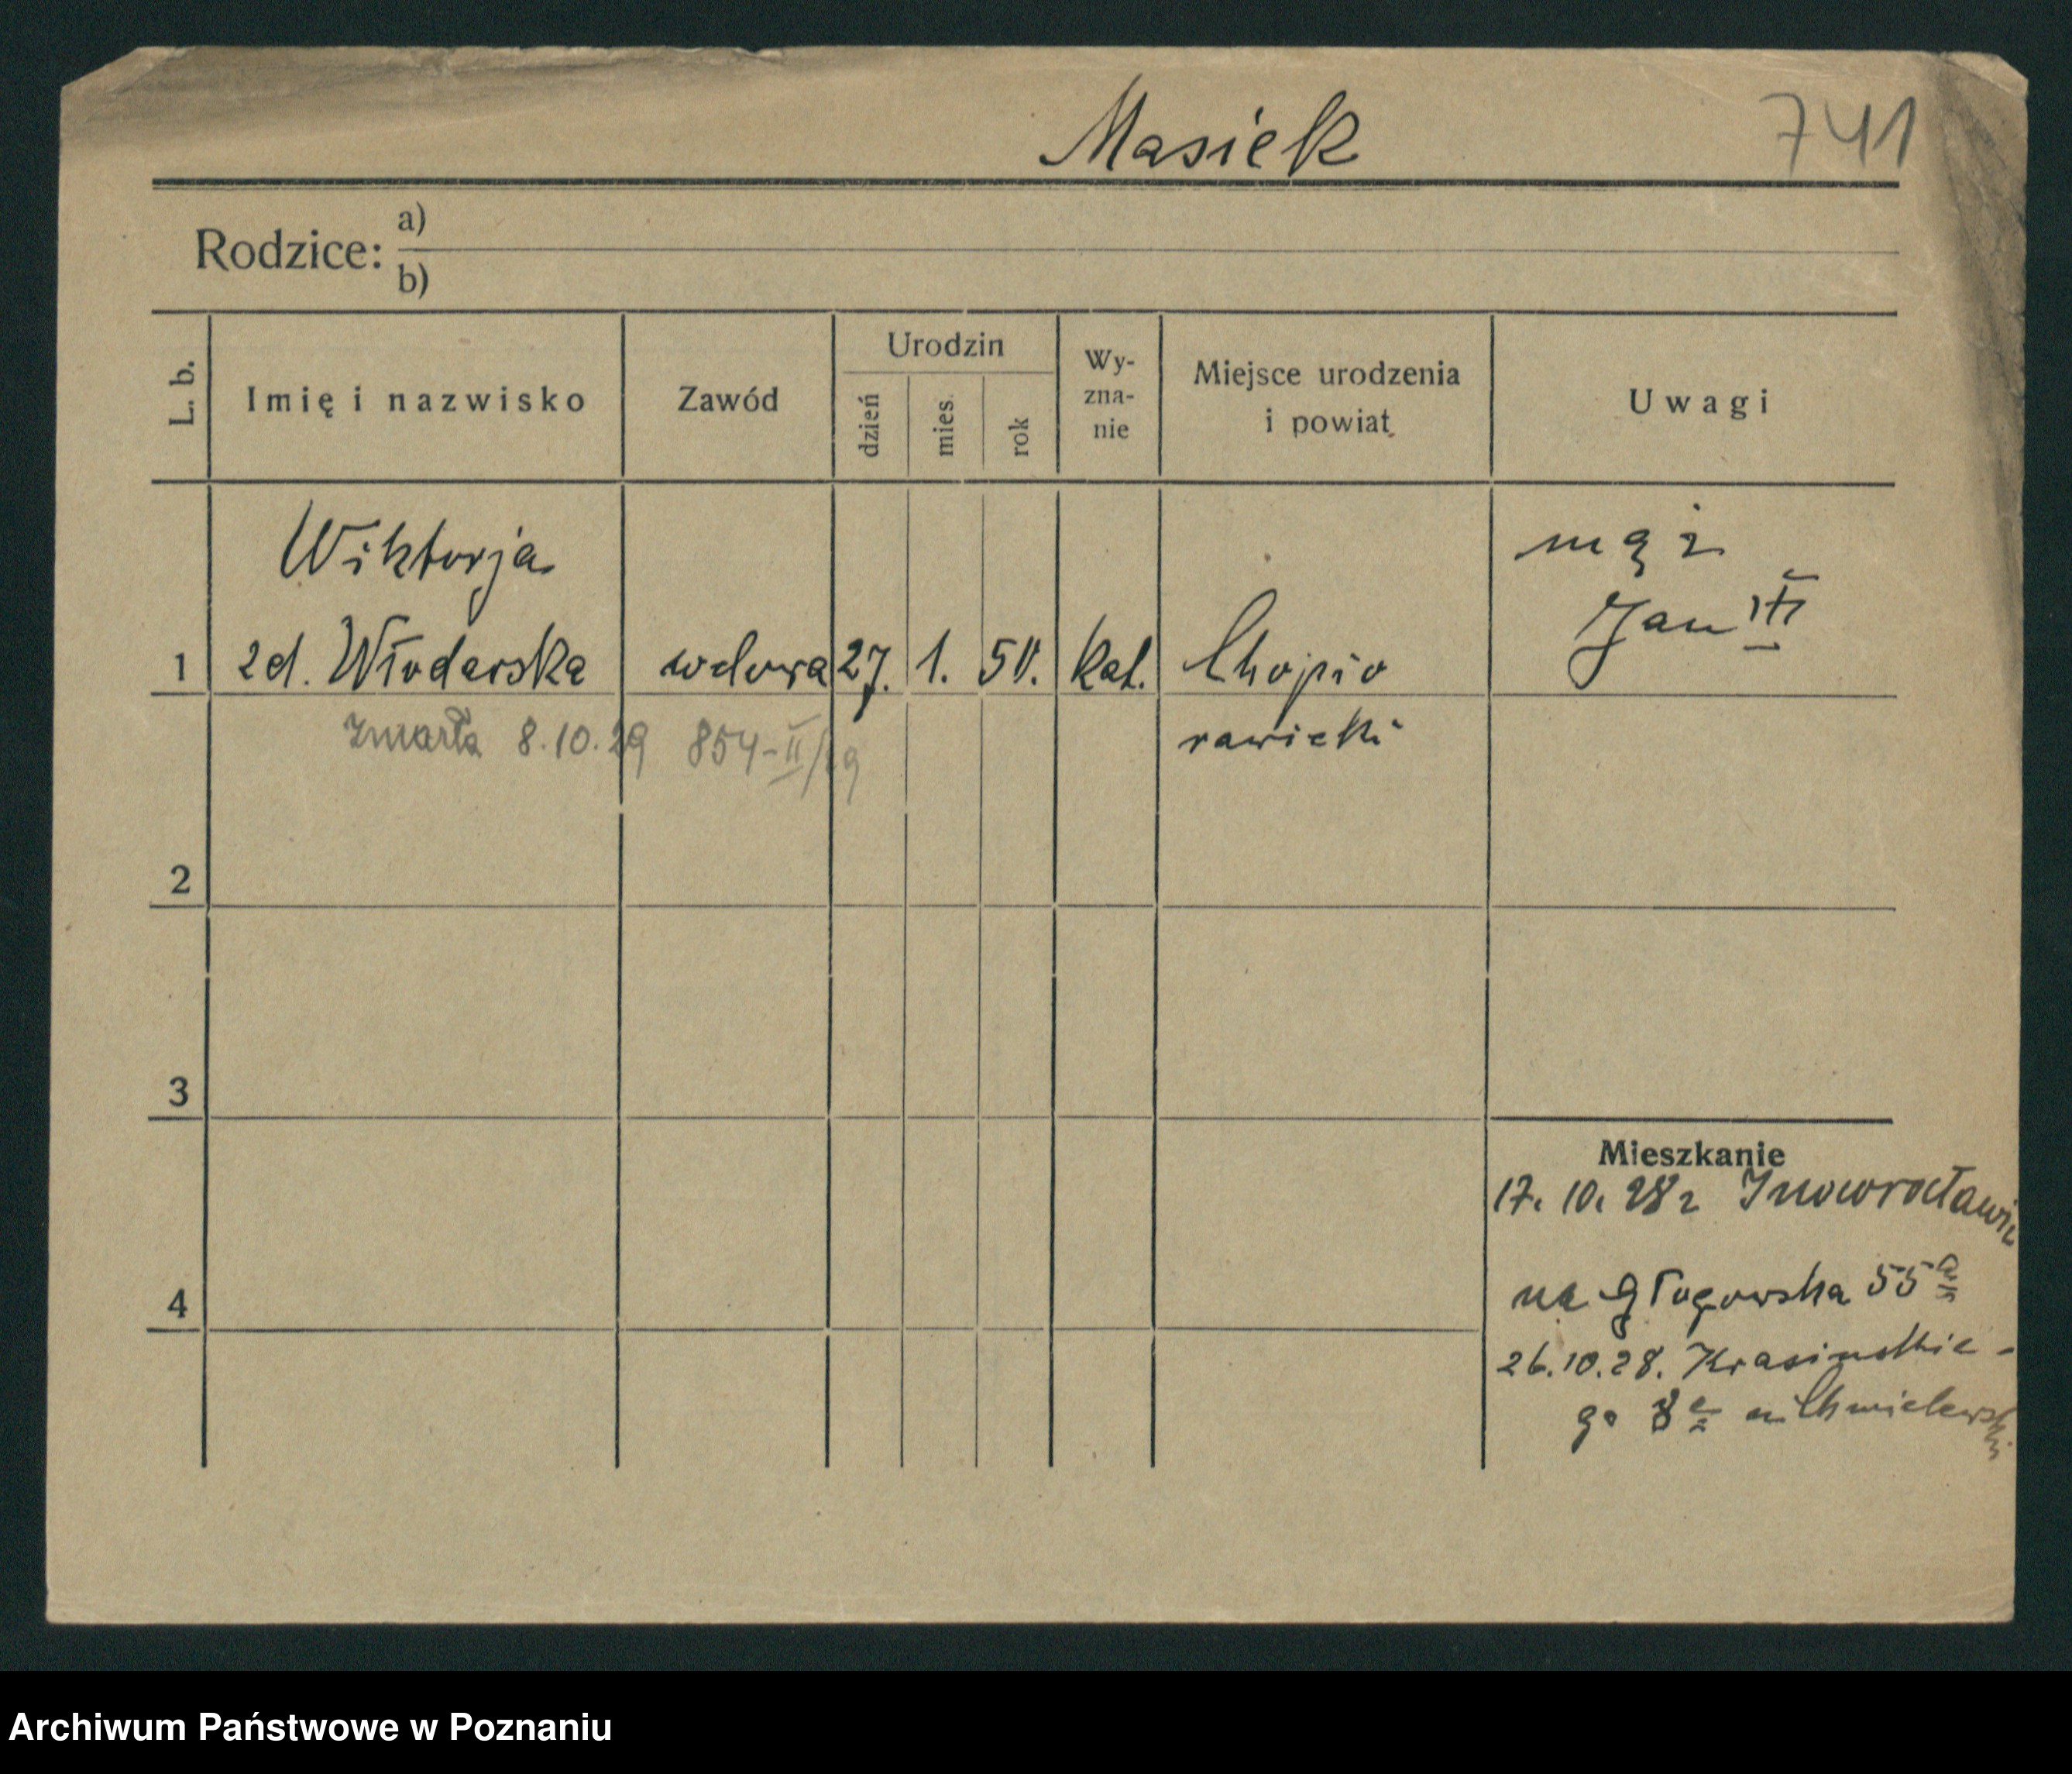 Masiek 741
Rodzice: a)
b)
L. b. Imię i nazwisko Zawód Urodzin dzień mies. rok Wy-zna-nie Miejsce urodzenia i powiat Uwagi
Wiktorja mąż
Jan III
1 zd. Włodarska wdowa 27. 1. 50. kat. Chojno
zmarła 8.10.29 854-II/29 rawicki
2
3
Mieszkanie
17. 10. 28 z Inowrocławia
4 na Głogowska 55a
26.10.28. Krasińskie-
go 8a u Chmielewski
Archiwum Państwowe w Poznaniu